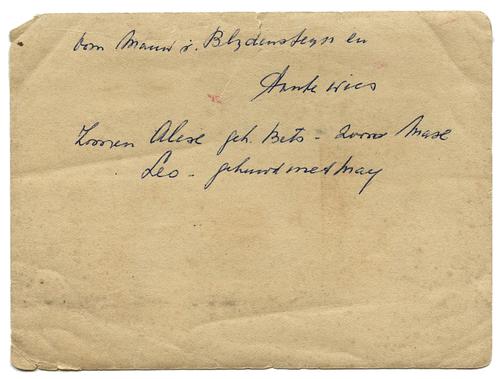 Oom Manus v. Blydensteyn en
Tante Wies
Zoonen Alex geh. Bets - zoon Max
Leo - gehuwd met May